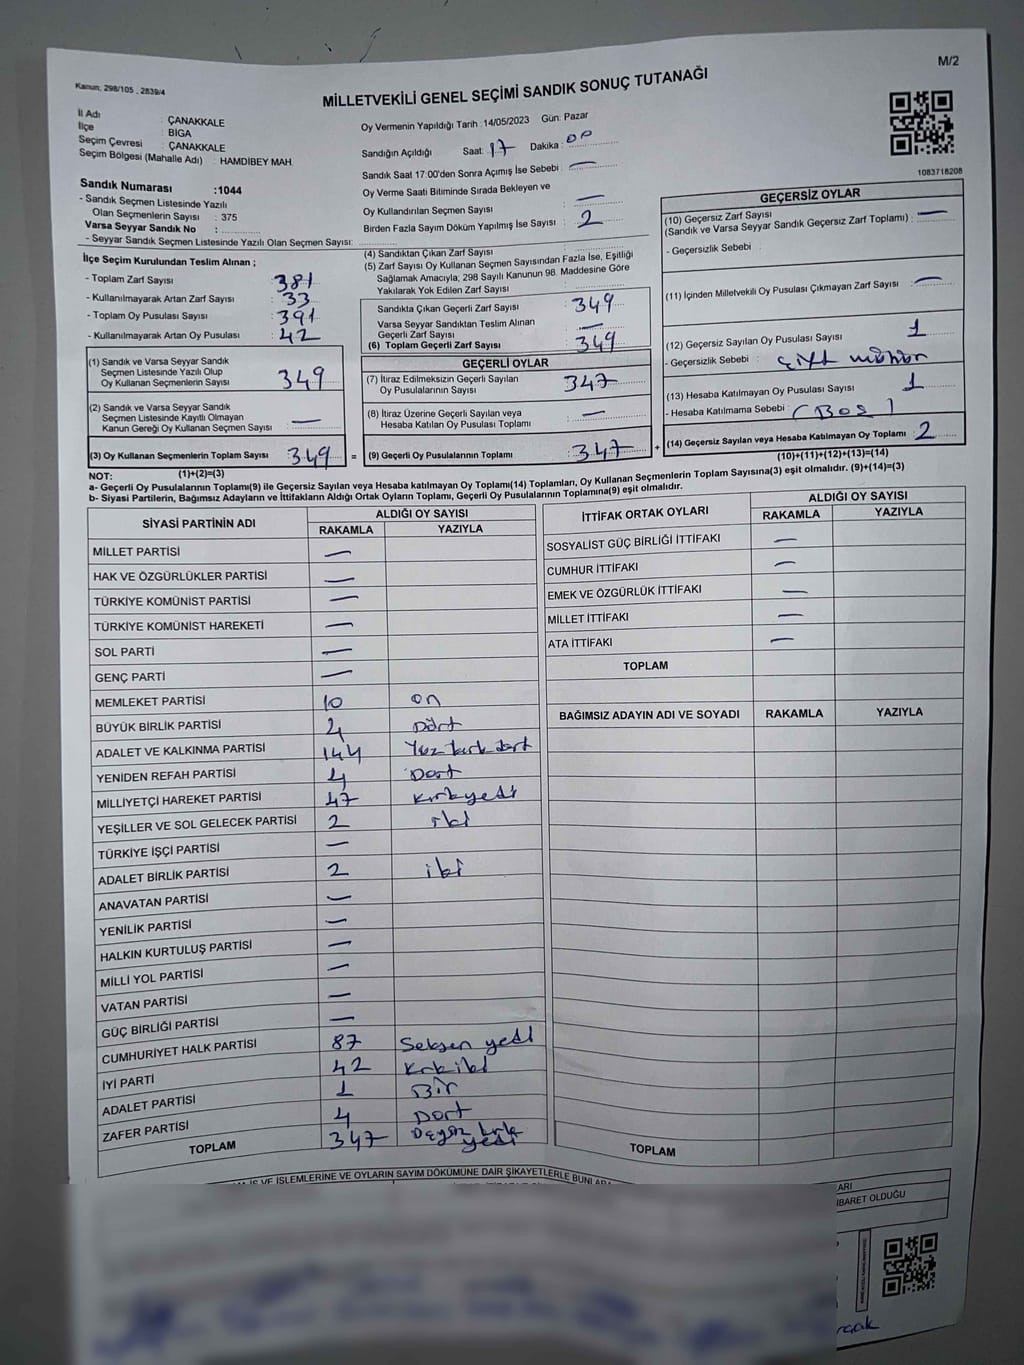 M/2
Kanun; 298/105 , 2839/4
MİLLETVEKİLİ GENEL SEÇİMİ SANDIK SONUÇ TUTANAĞI
İl Adı : ÇANAKKALE
İlçe : BİGA
Seçim Çevresi : ÇANAKKALE
Seçim Bölgesi (Mahalle Adı) : HAMDİBEY MAH.
Sandık Numarası :1044
- Sandık Seçmen Listesinde Yazılı
Olan Seçmenlerin Sayısı : 375
Varsa Seyyar Sandık No :
- Seyyar Sandık Seçmen Listesinde Yazılı Olan Seçmen Sayısı:
Oy Vermenin Yapıldığı Tarih :14/05/2023 Gün: Pazar
Sandığın Açıldığı Saat: 17 Dakika: 00
Sandık Saat 17:00'den Sonra Açımış İse Sebebi : —
Oy Verme Saati Bitiminde Sırada Bekleyen ve
Oy Kullandırılan Seçmen Sayısı —
Birden Fazla Sayım Döküm Yapılmış İse Sayısı : 2
1083718208
İlçe Seçim Kurulundan Teslim Alınan ;
- Toplam Zarf Sayısı 381
- Kullanılmayarak Artan Zarf Sayısı : 33
- Toplam Oy Pusulası Sayısı : 391
- Kullanılmayarak Artan Oy Pusulası : 42
(1) Sandık ve Varsa Seyyar Sandık
Seçmen Listesinde Yazılı Olup
Oy Kullanan Seçmenlerin Sayısı : 349
(2) Sandık ve Varsa Seyyar Sandık
Seçmen Listesinde Kayıtlı Olmayan
Kanun Gereği Oy Kullanan Seçmen Sayısı : —
(3) Oy Kullanan Seçmenlerin Toplam Sayısı : 349 =
(1)+(2)=(3)
(4) Sandıktan Çıkan Zarf Sayısı :
(5) Zarf Sayısı Oy Kullanan Seçmen Sayısından Fazla İse, Eşitliği
Sağlamak Amacıyla; 298 Sayılı Kanunun 98. Maddesine Göre
Yakılarak Yok Edilen Zarf Sayısı :
Sandıkta Çıkan Geçerli Zarf Sayısı 349
Varsa Seyyar Sandıktan Teslim Alınan
Geçerli Zarf Sayısı —
(6) Toplam Geçerli Zarf Sayısı : 349
GEÇERLİ OYLAR
(7) İtiraz Edilmeksizin Geçerli Sayılan
Oy Pusulalarının Sayısı : 347
(8) İtiraz Üzerine Geçerli Sayılan veya
Hesaba Katılan Oy Pusulası Toplamı : —
(9) Geçerli Oy Pusulalarının Toplamı : 347 +
GEÇERSİZ OYLAR
(10) Geçersiz Zarf Sayısı
(Sandık ve Varsa Seyyar Sandık Geçersiz Zarf Toplamı) : —
- Geçersizlik Sebebi :
(11) İçinden Milletvekili Oy Pusulası Çıkmayan Zarf Sayısı : —
(12) Geçersiz Sayılan Oy Pusulası Sayısı : 1
- Geçersizlik Sebebi : çift mühür
(13) Hesaba Katılmayan Oy Pusulası Sayısı : 1
- Hesaba Katılmama Sebebi : (BOŞ)
(14) Geçersiz Sayılan veya Hesaba Katılmayan Oy Toplamı : 2
(10)+(11)+(12)+(13)=(14)
NOT:
a- Geçerli Oy Pusulalarının Toplamı(9) ile Geçersiz Sayılan veya Hesaba katılmayan Oy Toplamı(14) Toplamları, Oy Kullanan Seçmenlerin Toplam Sayısına(3) eşit olmalıdır. (9)+(14)=(3)
b- Siyasi Partilerin, Bağımsız Adayların ve İttifakların Aldığı Ortak Oyların Toplamı, Geçerli Oy Pusulalarının Toplamına(9) eşit olmalıdır.
SİYASİ PARTİNİN ADI ALDIĞI OY SAYISI
RAKAMLA YAZIYLA
MİLLET PARTİSİ —
HAK VE ÖZGÜRLÜKLER PARTİSİ —
TÜRKİYE KOMÜNİST PARTİSİ —
TÜRKİYE KOMÜNİST HAREKETİ —
SOL PARTİ —
GENÇ PARTİ —
MEMLEKET PARTİSİ 10 on
BÜYÜK BİRLİK PARTİSİ 4 Dört
ADALET VE KALKINMA PARTİSİ 144 Yüz kırk dört
YENİDEN REFAH PARTİSİ 4 Dört
MİLLİYETÇİ HAREKET PARTİSİ 47 kırkyedi
YEŞİLLER VE SOL GELECEK PARTİSİ 2 iki
TÜRKİYE İŞÇİ PARTİSİ —
ADALET BİRLİK PARTİSİ 2 iki
ANAVATAN PARTİSİ —
YENİLİK PARTİSİ —
HALKIN KURTULUŞ PARTİSİ —
MİLLİ YOL PARTİSİ —
VATAN PARTİSİ —
GÜÇ BİRLİĞİ PARTİSİ —
CUMHURİYET HALK PARTİSİ 87 Seksen yedi
İYİ PARTİ 42 Kırkiki
ADALET PARTİSİ 1 Bir
ZAFER PARTİSİ 4 Dört
TOPLAM 347 kırk yedi
İTTİFAK ORTAK OYLARI ALDIĞI OY SAYISI
RAKAMLA YAZIYLA
SOSYALİST GÜÇ BİRLİĞİ İTTİFAKI —
CUMHUR İTTİFAKI —
EMEK VE ÖZGÜRLÜK İTTİFAKI —
MİLLET İTTİFAKI —
ATA İTTİFAKI —
TOPLAM
BAĞIMSIZ ADAYIN ADI VE SOYADI RAKAMLA YAZIYLA
TOPLAM
İŞ VE İŞLEMLERİNE VE OYLARIN SAYIM DÖKÜMÜNE DAİR ŞİKAYETLERLE BUNLARA
ARI
İBARET OLDUĞU